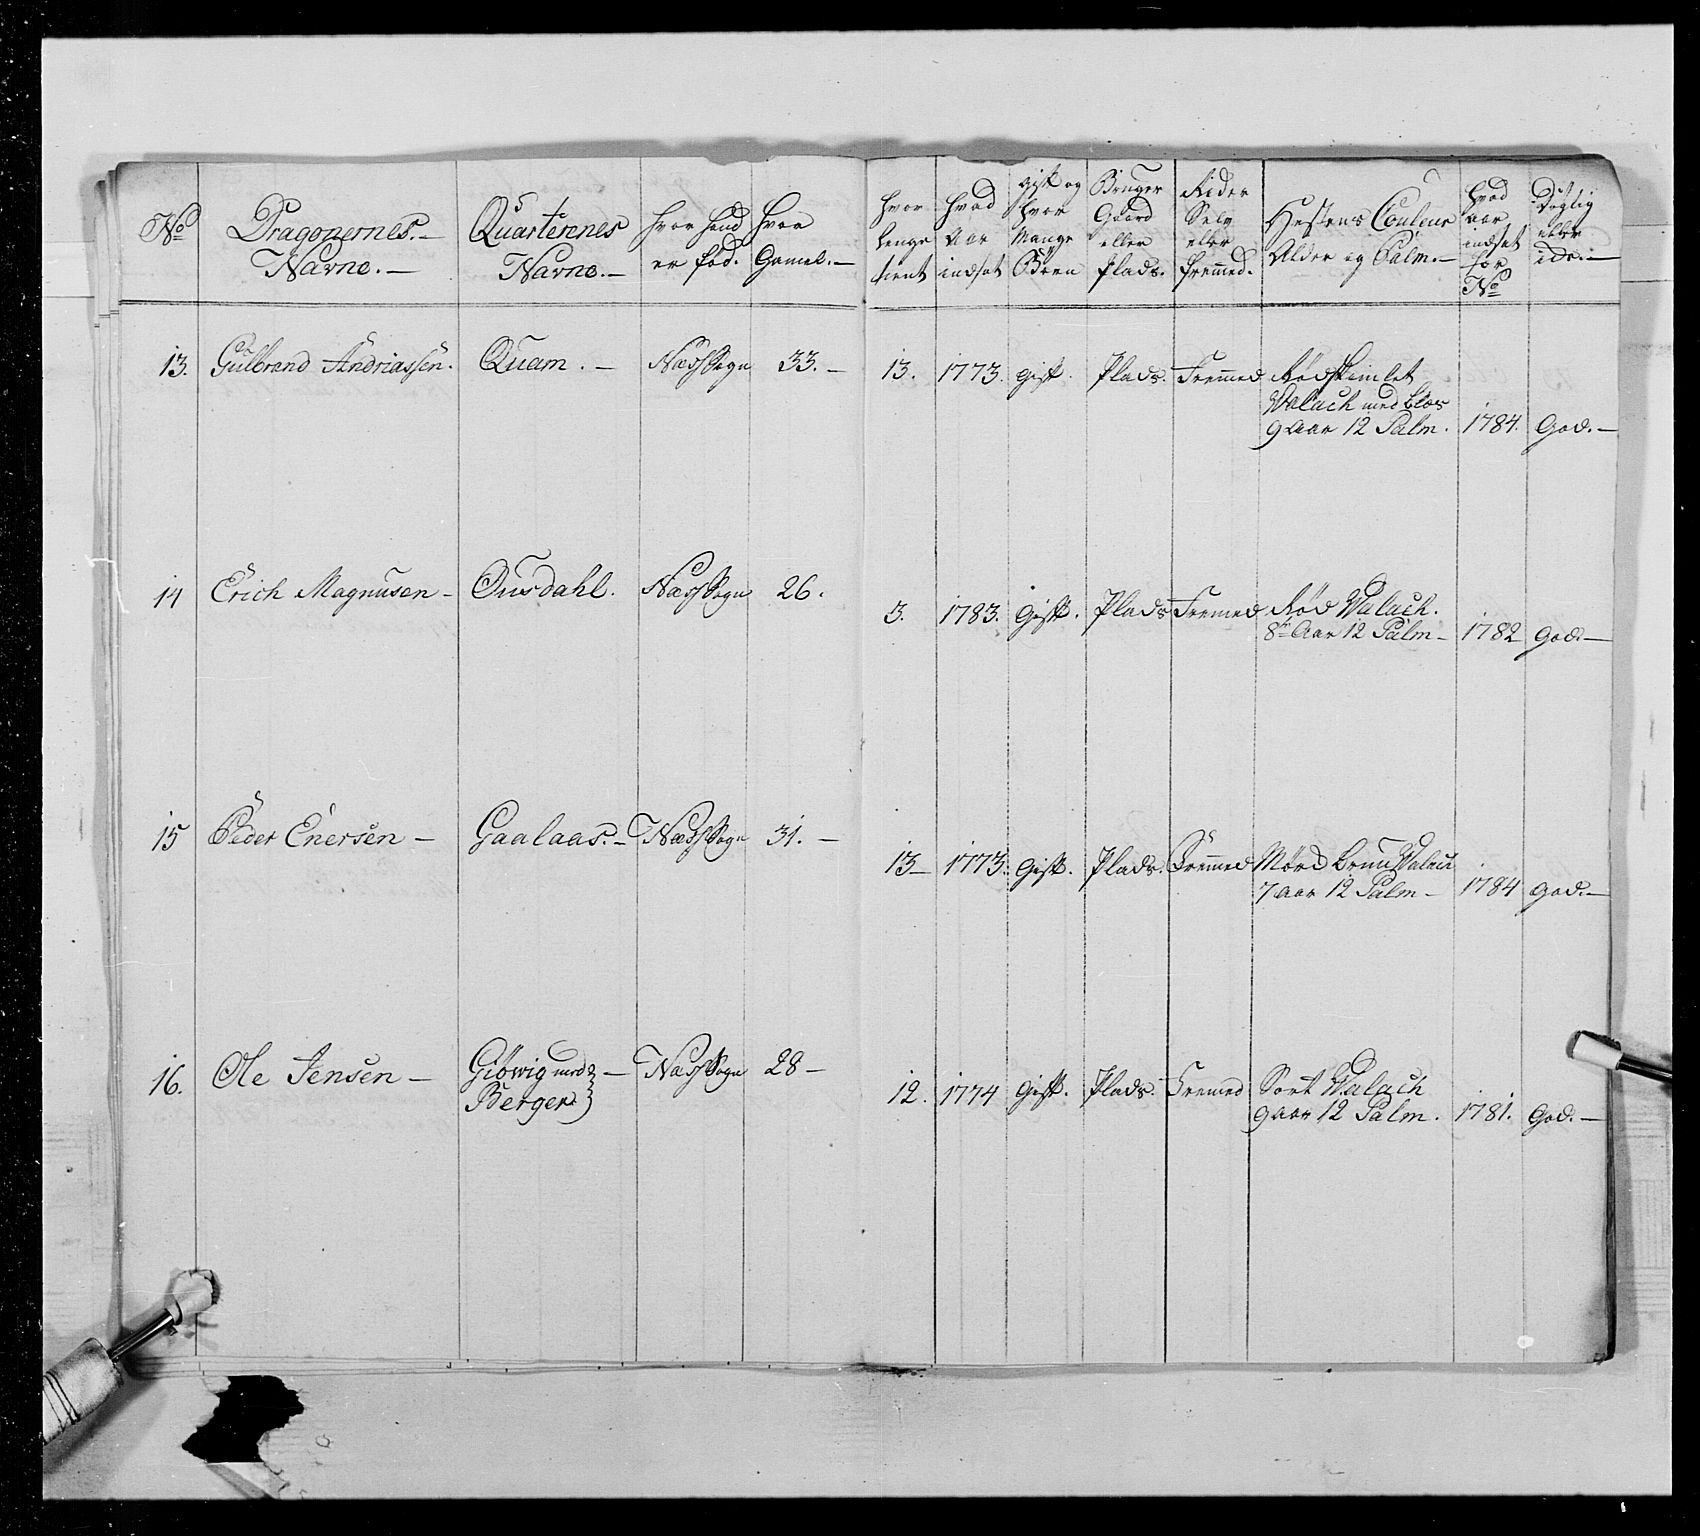 No Dragonernes.— Navne.— Quarterenes Navne.— hvor hand er fød. hvor Gamel.— hvor lenge tient hvad Aar indsat gift og hvor Mange Børn Bruger Gaard eller Plads. Rider Selv eller fremmed. Hestens Couleur Alder og Palm.— hvad aar indsat for No Dygtig eller ide.—
13. Gulbrand Andriassen. Quam.— Næs Sogn 33.— 13. 1773. gift. Plads. Fremmed Rødskimlet
Valach med Blæs
9 Aar 12 Palm. 1784. God.—
14 Erich Magnusen— Ousdahl. Næs Sogn 26. 3. 1783. Gift. Plads Fremed Rød Valach.
8te Aar 12 Palm— 1782 God.—
15 Peder Enersen— Gaalaas.— Næs Sogn 31.— 13— 1773. Gift. Plads. Fremmed Mørd Brun Valach
7 aar 12 Palm— 1784 God.—
16. Ole Jensen— Gibwig med— Næs Sogn 28— 12. 1774 Gift. Plads. Fremed Sort Valach
Berger 9 aar 12 Palm. 1781. God.—